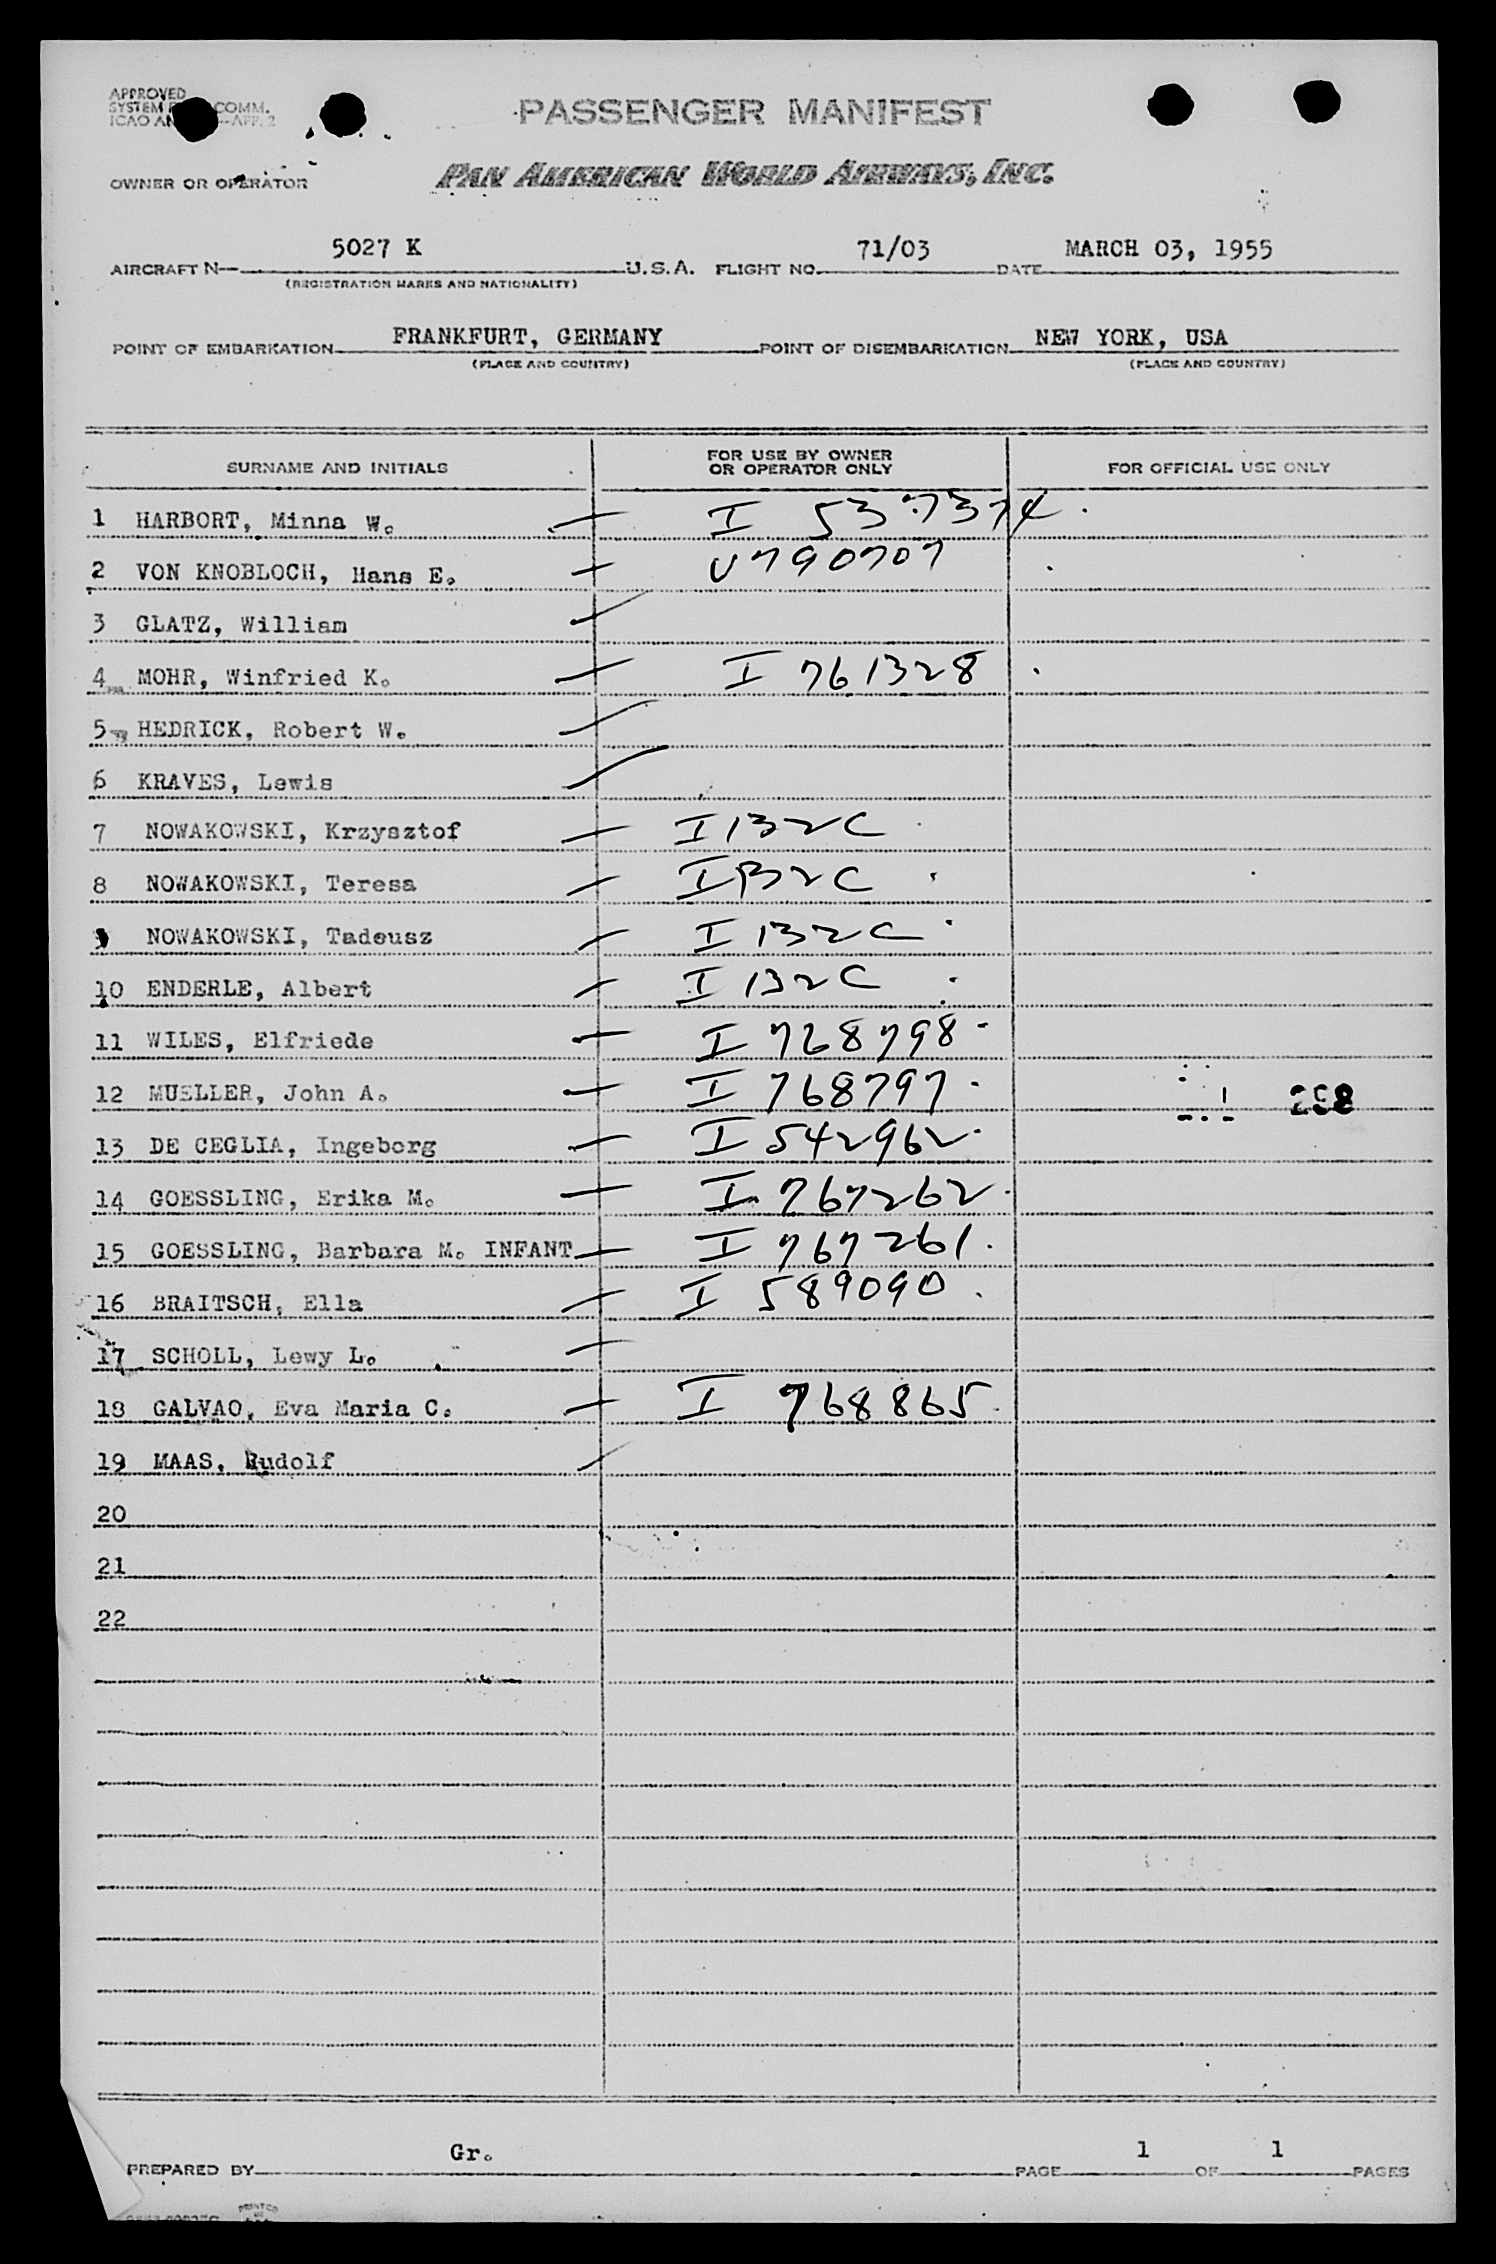 APPROVED
SYSTEM COMM.
ICAO AN —APP. 2
PASSENGER MANIFEST
OWNER OR OPERATOR
PAN AMERICAN WORLD AIRWAYS, INC.
AIRCRAFT N— 5027 K U.S.A. FLIGHT NO. 71/03 DATE MARCH 03, 1955
(REGISTRATION MARKS AND NATIONALITY)
POINT OF EMBARKATION FRANKFURT, GERMANY POINT OF DISEMBARKATION NEW YORK, USA
(PLACE AND COUNTRY) (PLACE AND COUNTRY)
SURNAME AND INITIALS FOR USE BY OWNER OR OPERATOR ONLY FOR OFFICIAL USE ONLY
1 HARBORT, Minna W. I 537374
2 VON KNOBLOCH, Hans E. V790707
3 GLATZ, William
4 MOHR, Winfried K. I 761328
5 HEDRICK, Robert W.
6 KRAVES, Lewis
7 NOWAKOWSKI, Krzysztof I 132C
8 NOWAKOWSKI, Teresa I 132C
9 NOWAKOWSKI, Tadeusz I 132C
10 ENDERLE, Albert I 132C
11 WILES, Elfriede I 768798
12 MUELLER, John A. I 768797
13 DE CEGLIA, Ingeborg I 542962
14 GOESSLING, Erika M. I 767262
15 GOESSLING, Barbara M. INFANT I 767261
16 BRAITSCH, Ella I 589090
17 SCHOLL, Lewy L.
18 GALVAO, Eva Maria C. I 768865
19 MAAS, Rudolf
20
21
22
PREPARED BY Gr. PAGE 1 OF 1 PAGES
PRINTED